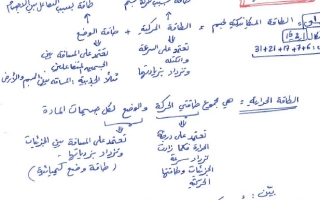 طاقة بسبب
طاقة بسبب التفاعل بين الأجسام
الطاقة الميكانيكية لجسم = طاقة الحركة + طاقة الوضع
تعتمد على السرعة والكتلة وتزداد بزيادتها
تعتمد على المسافة بين الجسمين المتفاعلين
مثلاً الجاذبية: المسافة بين الجسم والأرض
31+21+17+7+6+
الطاقة الحرارية = هي مجموع طاقتي الحركة والوضع لكل جسيمات المادة
تعتمد على درجة الحرارة فكلما زادت تزداد سرعة الجزيئات وطاقتها الحركية
تعتمد على المسافة بين الجزيئات وتزداد بزيادتها
(طاقة وضع كيميائية)
بين: